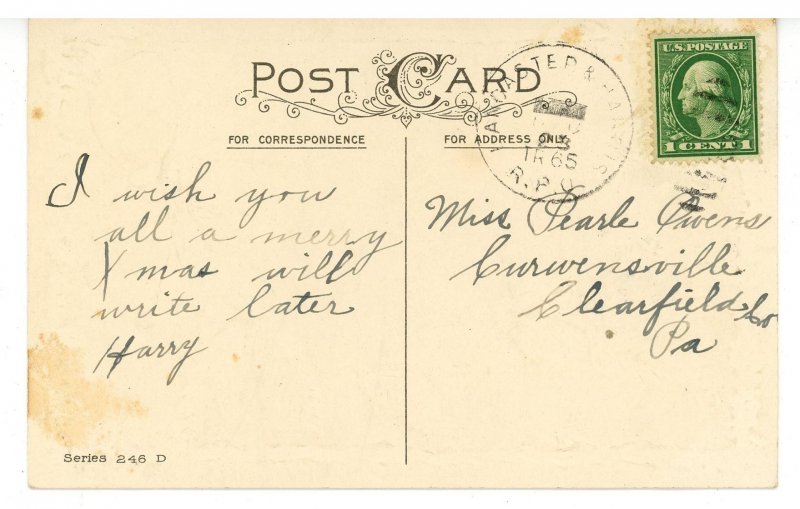 POST CARD
FOR CORRESPONDENCE
FOR ADDRESS ONLY
LANCASTER & HARRIS
TR 65
R.P.O.
U.S. POSTAGE
1 CENT 1
I wish you
all a merry
Xmas will
write later
Harry
Miss Pearle Owens
Curwensville
Clearfield Co
Pa
Series 246 D